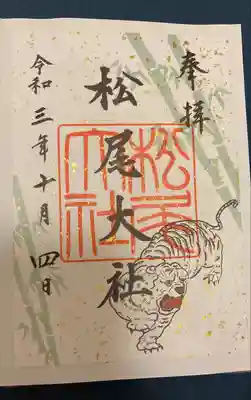 奉拝
松尾大社
松尾大社
令和三年十月四日